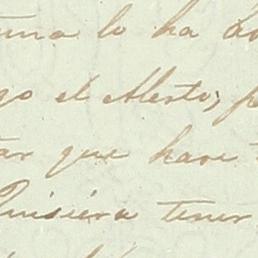 una lo ha
go el Alerto, p
que hace
Quisiera tener